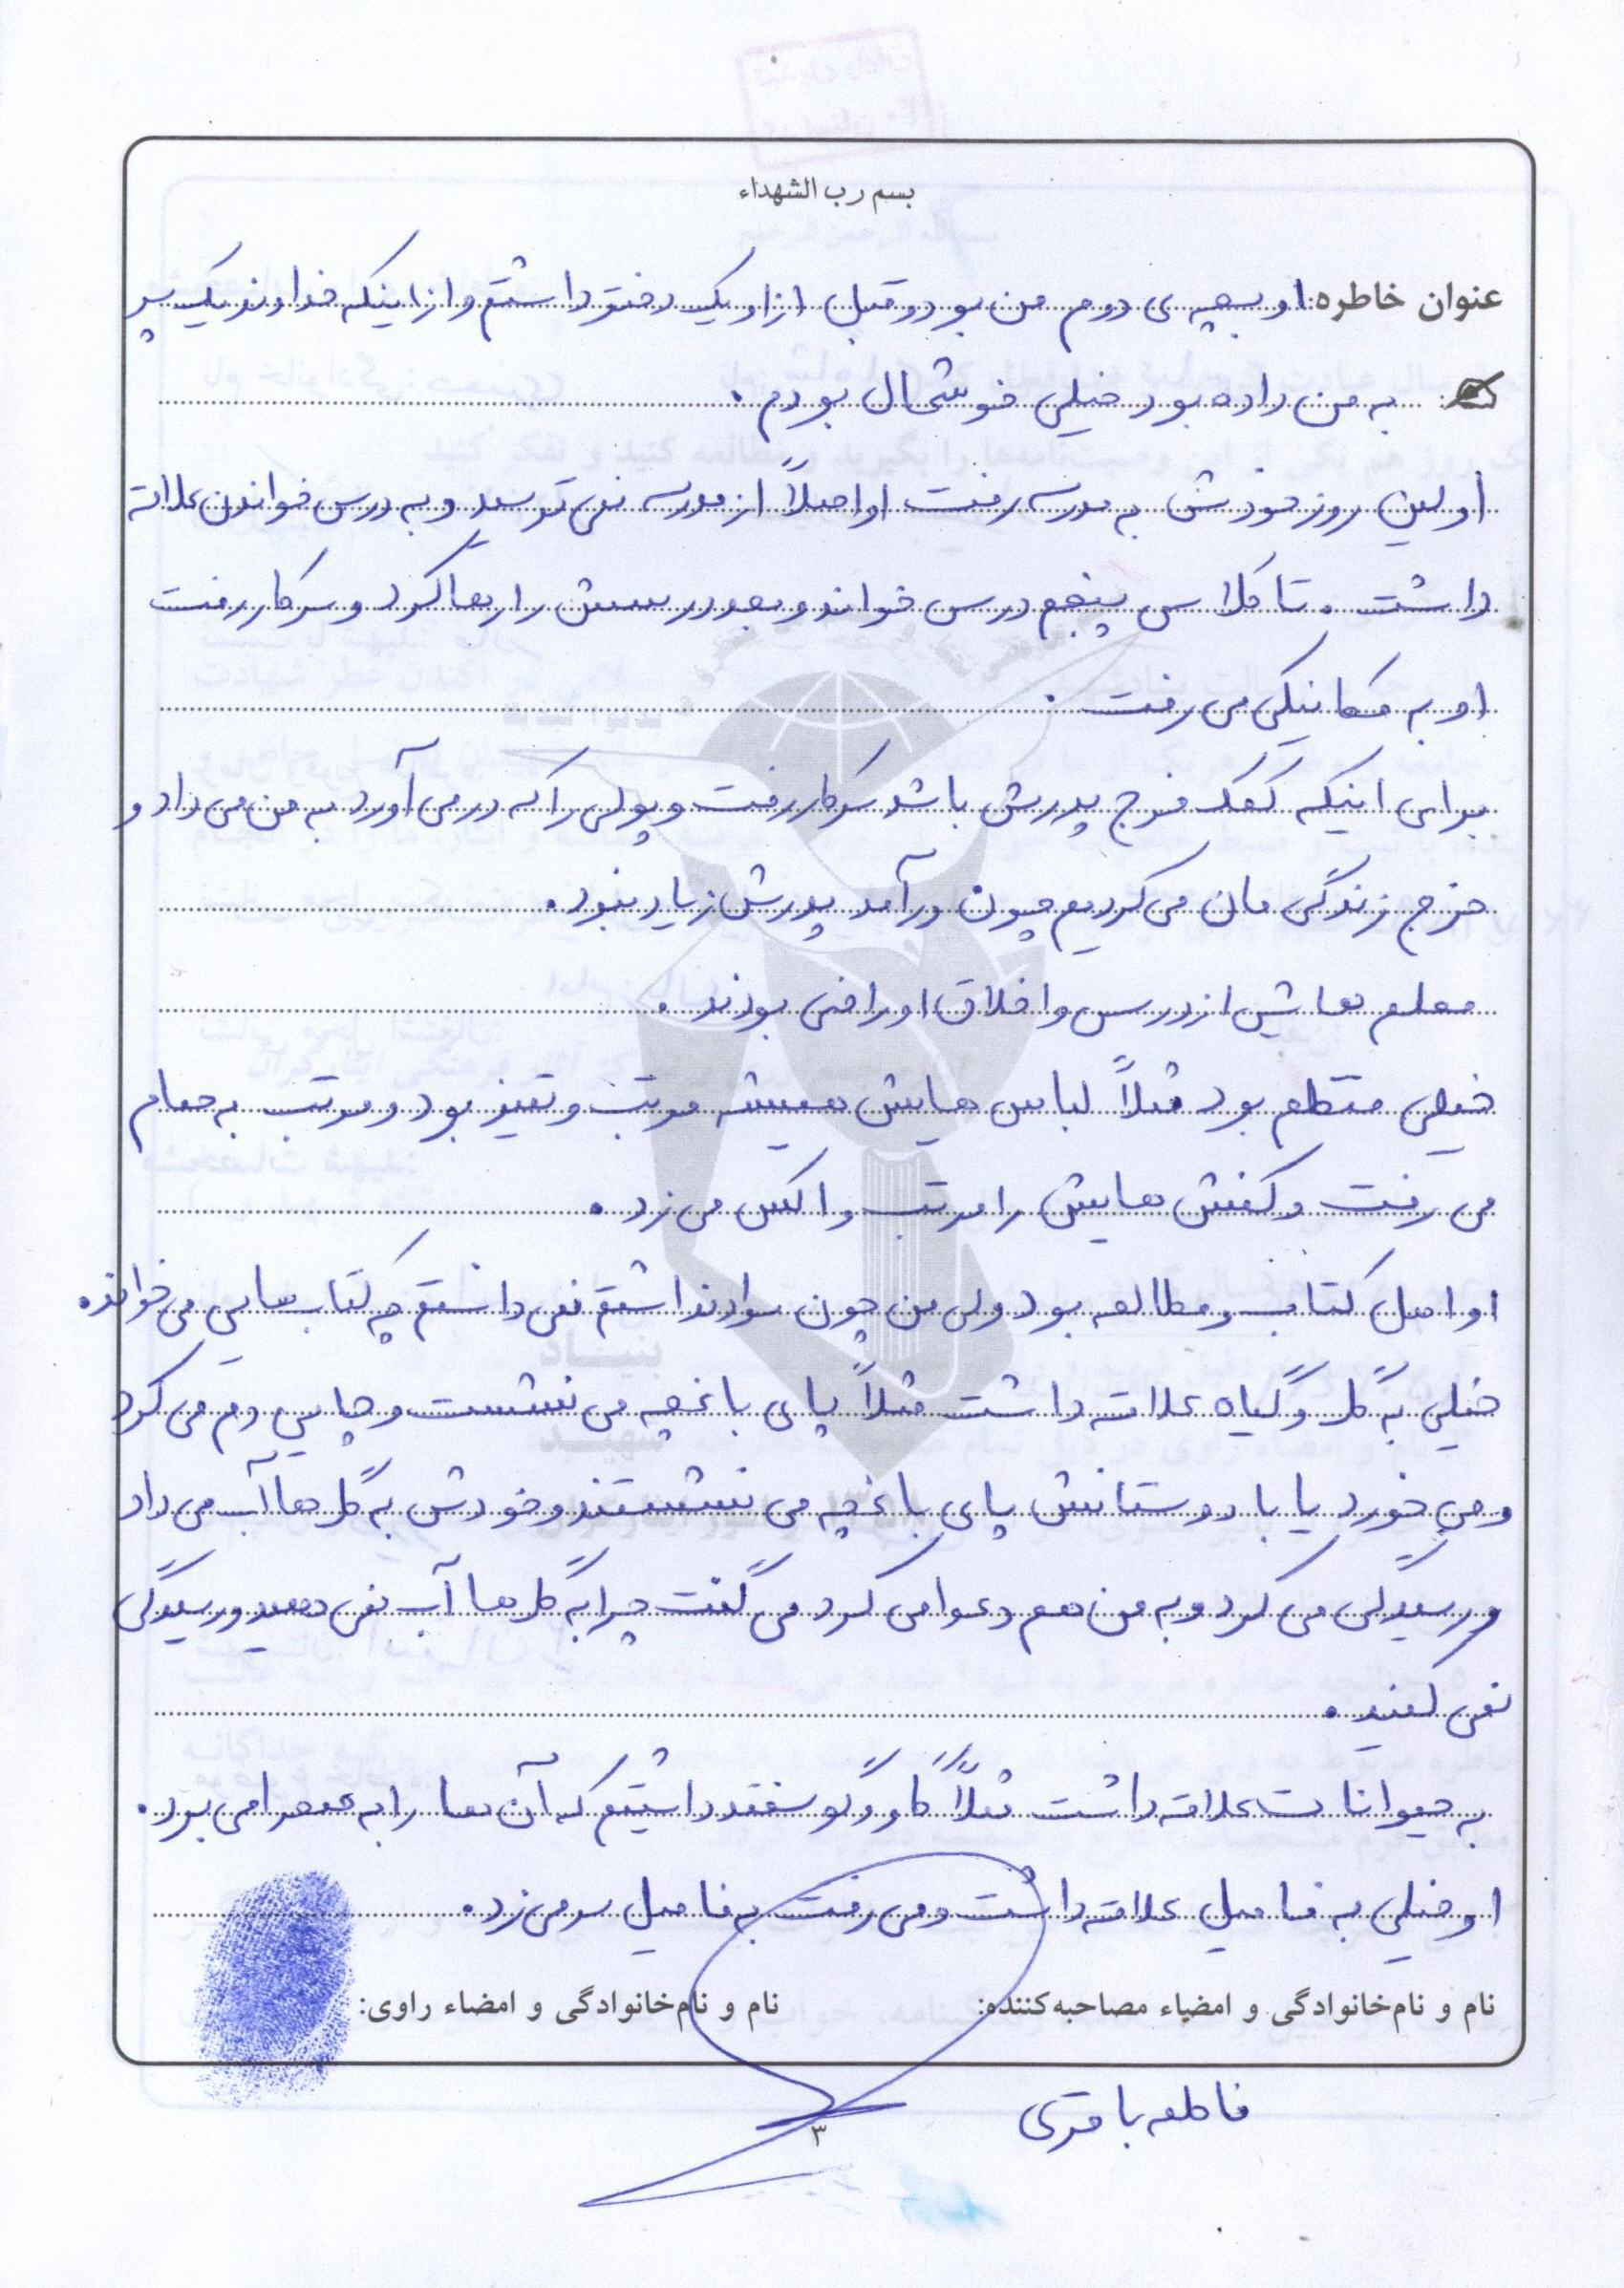 بسم رب الشهداء
عنوان خاطره: او بچه ی دوم من بود و قبل از او یک دختر داشتم و از اینکه خداوند یک پسر
به من داده بود خیلی خوشحال بودم.
اولین روز خودش به مدرسه رفت او اصلاً از مدرسه نمی ترسید و به درس خواندن علاقه
داشت. تا کلاس پنجم درس خواند و بعد درسش را رها کرد و سر کار رفت
او به مکانیکی می رفت.
برای اینکه کمک خرج پدرش باشد سرکار رفت و پولی را که در می آورد به من می داد و
خرج زندگی مان می کردیم چون درآمد پدرش زیاد نبود.
معلم هایش از درس و اخلاق او راضی بودند.
خیلی منظم بود مثلاً لباس هایش همیشه مرتب و تمیز بود و مرتب به حمام
می رفت و کفش هایش را مرتب واکس می زد.
او اهل کتاب و مطالعه بود ولی من چون سواد نداشتم نمی دانستم چه کتاب هایی می خوانده.
خیلی به گل و گیاه علاقه داشت مثلاً پای باغچه می نشست و چایی دم می کرد
و می خورد یا با دوستانش پای باغچه می نشستند و خودش به گل ها آب می داد
و رسیدگی می کرد و به من هم دعوا می کرد می گفت چرا به گل ها آب نمی دهید و رسیدگی
نمی کنید.
به حیوانات علاقه داشت مثلاً گاو و گوسفند داشتیم که آن ها را به صحرا می برد.
او خیلی به فامیل علاقه داشت و می رفت به فامیل سر می زد.
نام و نام‌خانوادگی و امضاء مصاحبه‌کننده: نام و نام‌خانوادگی و امضاء راوی:
فاطمه باقری
۳
بنیاد
شهید